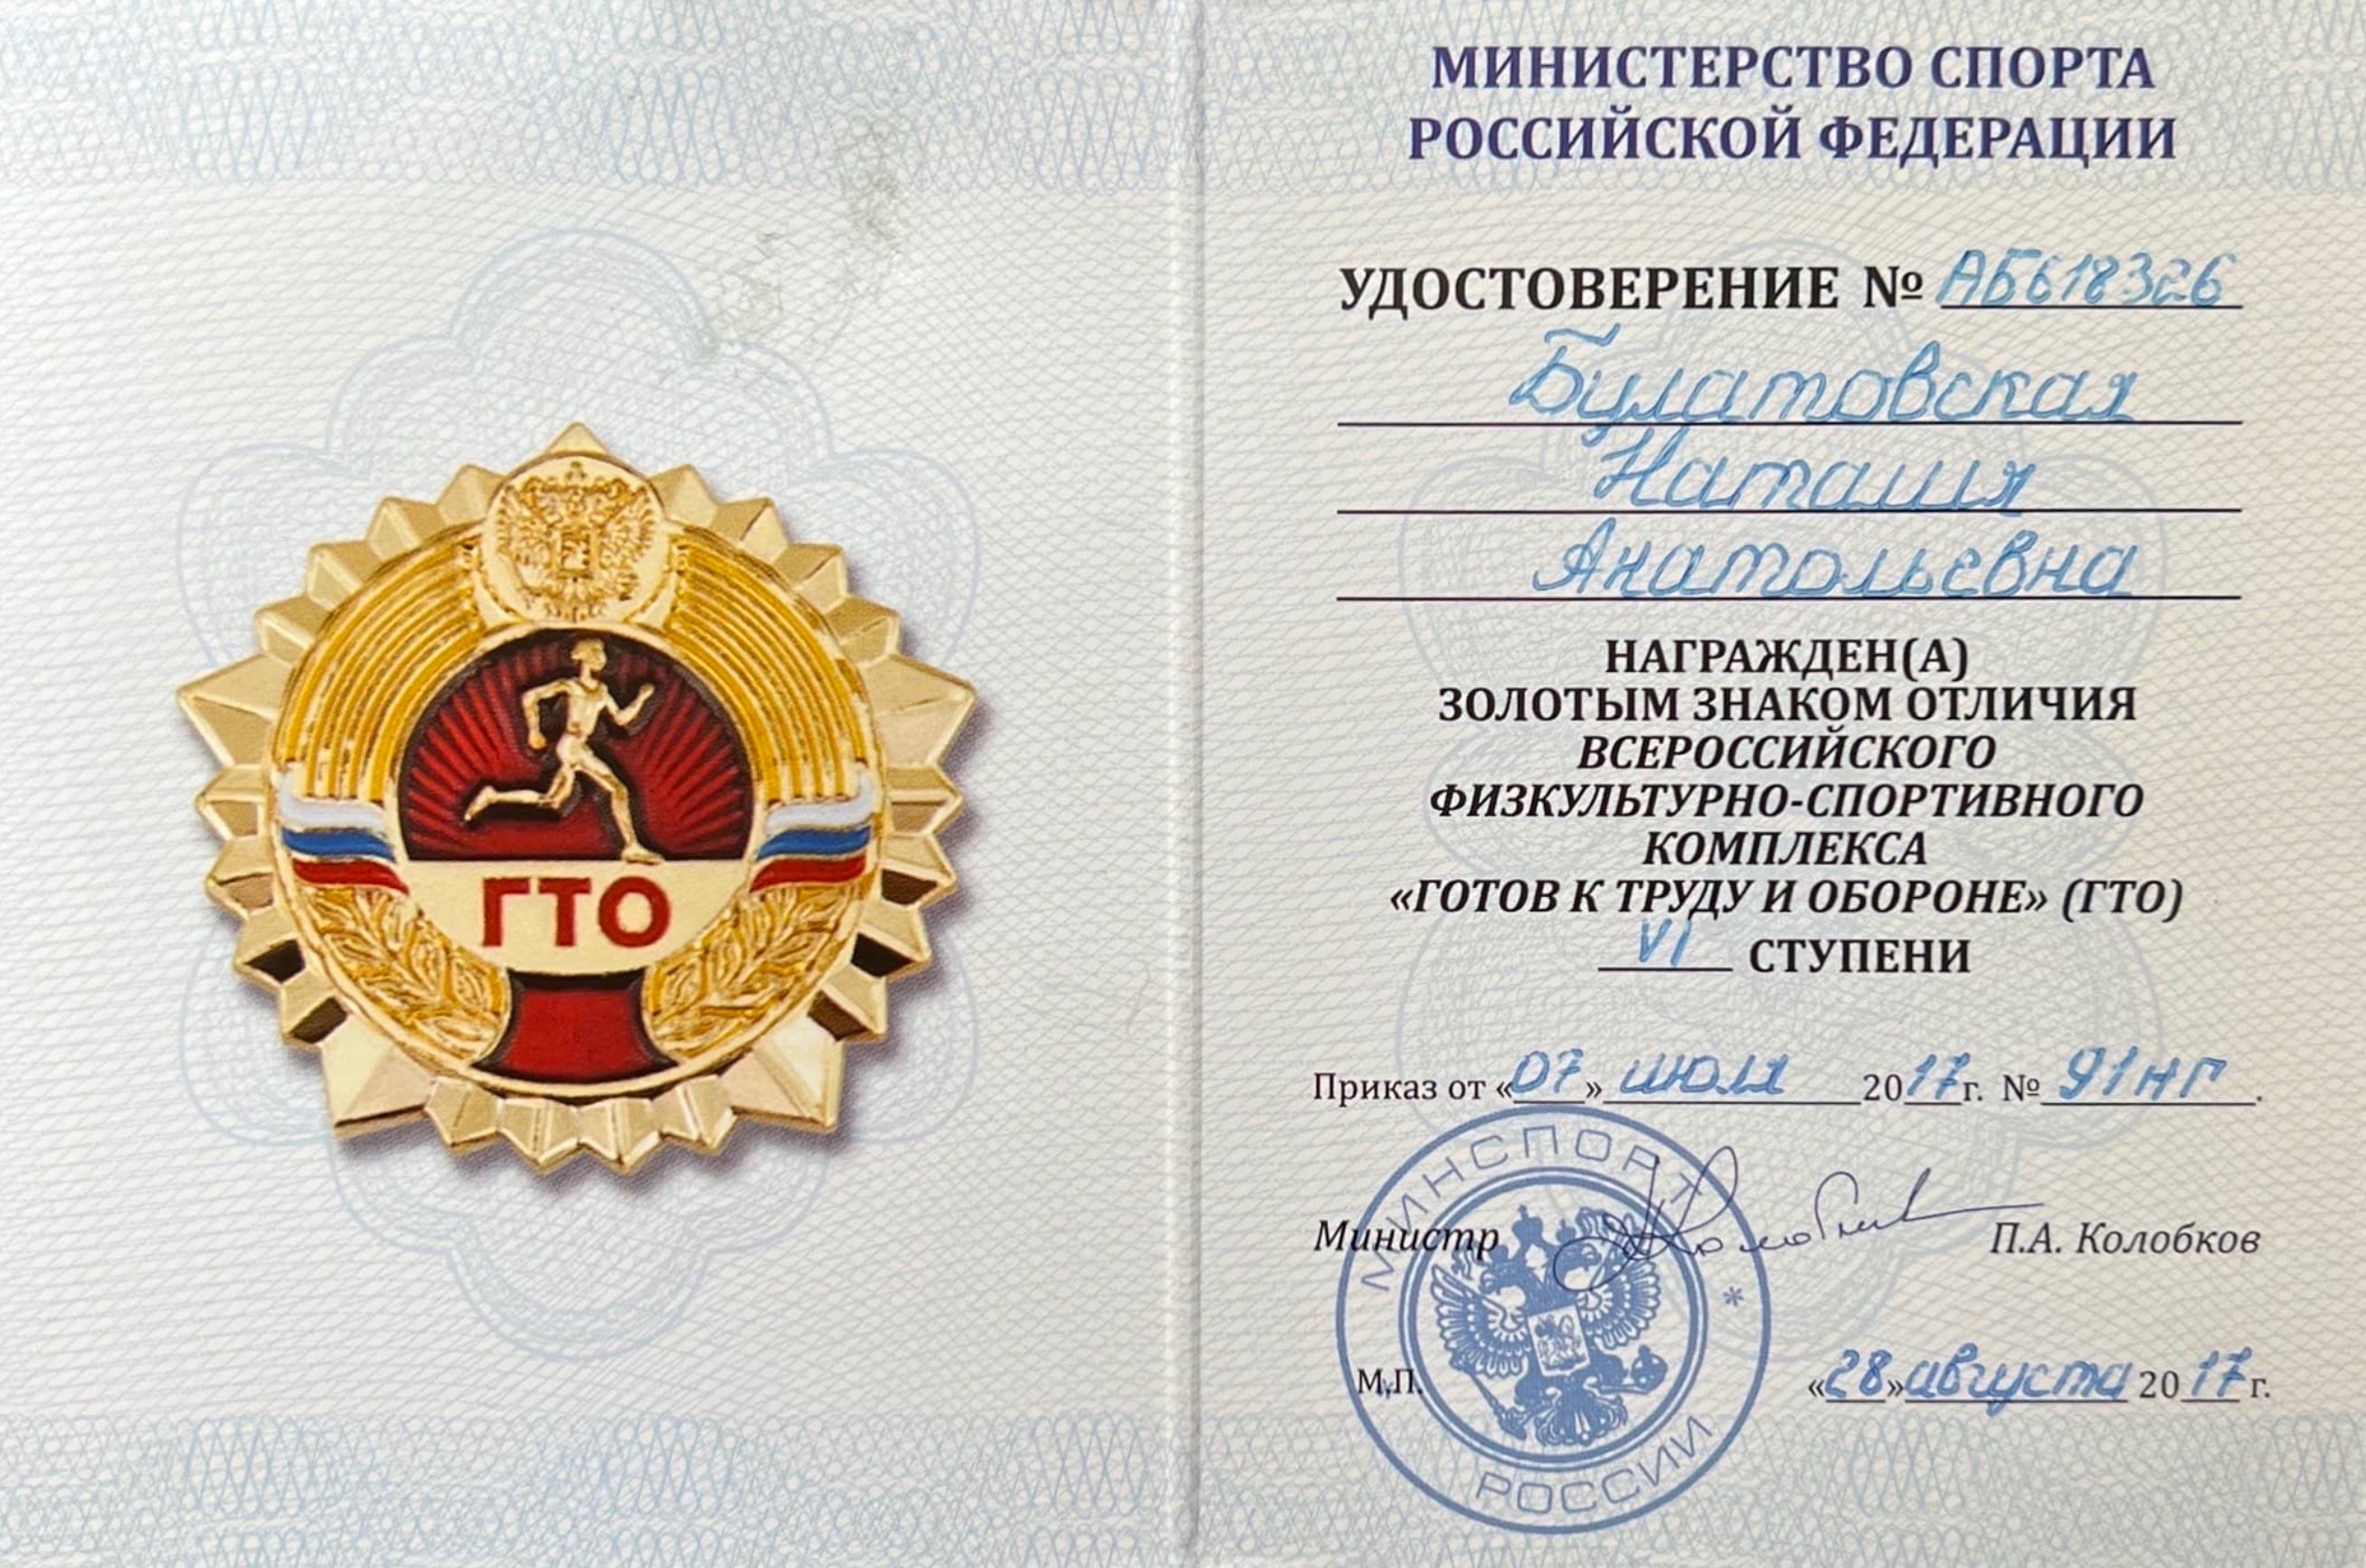 ГТО
МИНИСТЕРСТВО СПОРТА
РОССИЙСКОЙ ФЕДЕРАЦИИ
УДОСТОВЕРЕНИЕ № АБ618326
Булатовская
Наталия
Анатольевна
НАГРАЖДЕН(А)
ЗОЛОТЫМ ЗНАКОМ ОТЛИЧИЯ
ВСЕРОССИЙСКОГО
ФИЗКУЛЬТУРНО-СПОРТИВНОГО
КОМПЛЕКСА
«ГОТОВ К ТРУДУ И ОБОРОНЕ» (ГТО)
VI СТУПЕНИ
Приказ от «07» июля 2017г. № 91нг.
МИНСПОРТ
Министр П.А. Колобков
М.П. «28» августа 2017г.
РОССИИ